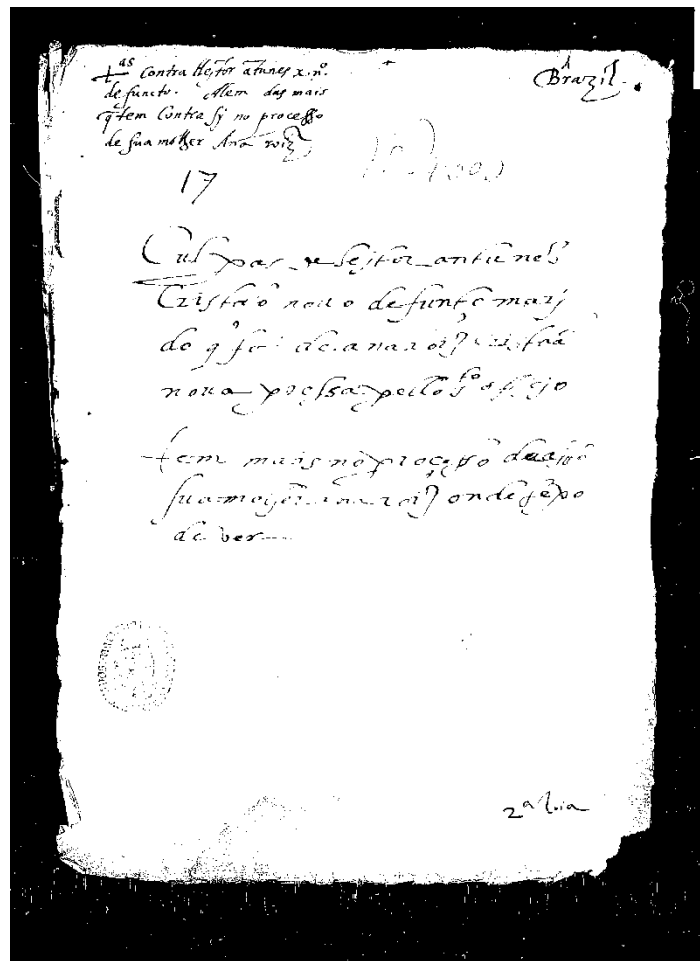 tas Contra Hejtor ãtunes x. nº.
defuncto. Alem das mais
q̃ tem Contra sy no processo
de sua molher Ana roiz
Brazil.
17
Culpas de hejtor antunes
Cristaõ nouo defunto mari
do q̃ foi de ana roiz cristaã
noua pressa pello sto officio
tem mais no processo
sua molher ana roiz onde se po
de ver
2ª Via